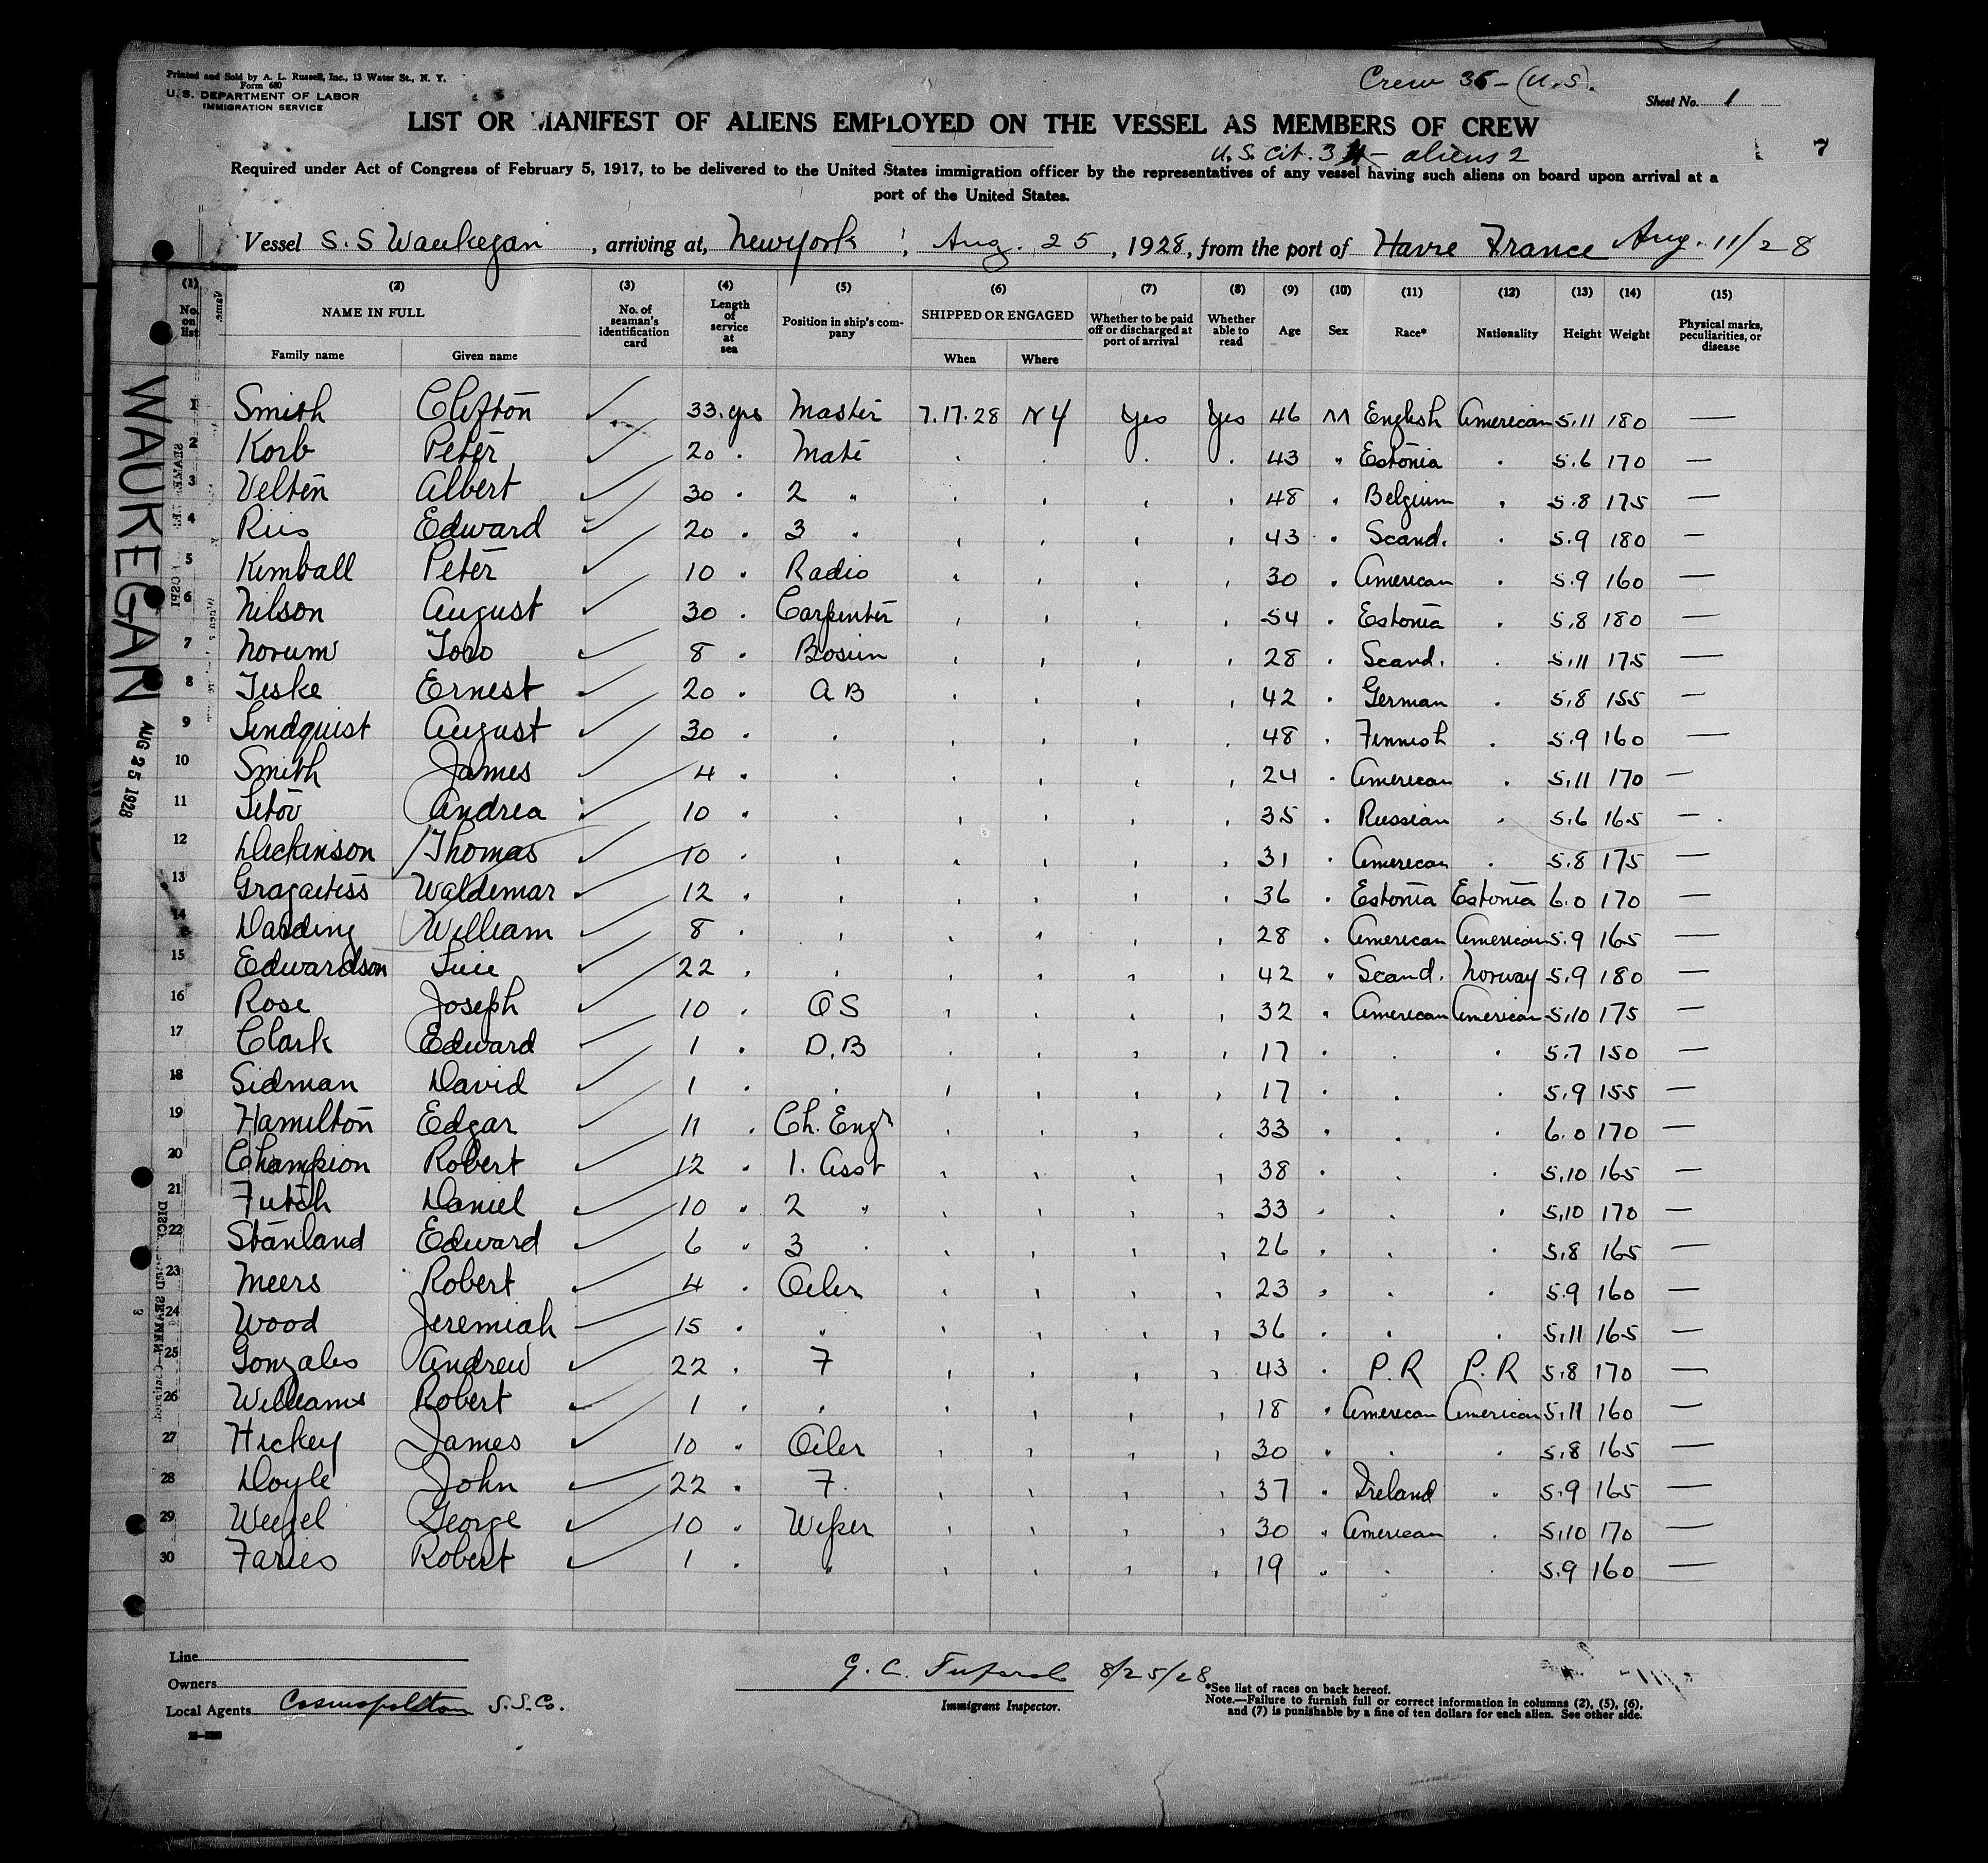 Printed and Sold by A. L. Russell, Inc., 13 Water St., N. Y.
Form 680
U. S. DEPARTMENT OF LABOR
IMMIGRATION SERVICE
Crew 36 - (U.S).
Sheet No. 1
LIST OR MANIFEST OF ALIENS EMPLOYED ON THE VESSEL AS MEMBERS OF CREW
U.S. Cit. 34 - aliens 2
7
Required under Act of Congress of February 5, 1917, to be delivered to the United States immigration officer by the representatives of any vessel having such aliens on board upon arrival at a
port of the United States.
Vessel S.S Waukegan, arriving at, New York, Aug. 25, 1928, from the port of Havre France Aug. 11/28
(1) (2) (3) (4) (5) (6) (7) (8) (9) (10) (11) (12) (13) (14) (15)
No. on list NAME IN FULL Family name Given name No. of seaman's identification card Length of service at sea Position in ship's company SHIPPED OR ENGAGED When Where Whether to be paid off or discharged at port of arrival Whether able to read Age Sex Race* Nationality Height Weight Physical marks, peculiarities, or disease
1 Smith Clifton ✓ 33. yrs Master 7.17.28 NY Yes Yes 46 M English American 5.11 180 —
2 Korb Peter ✓ 20 " Mate " " " " 43 " Estonia " 5.6 170 —
3 Velten Albert ✓ 30 " 2 " " " " " 48 " Belgium " 5.8 175 —
4 Riis Edward ✓ 20 " 3 " " " " " 43 " Scand. " 5.9 180 —
5 Kimball Peter ✓ 10 " Radio " " " " 30 " American " 5.9 160 —
6 Nilson August ✓ 30 " Carpenter " " " " 54 " Estonia " 5.8 180 —
7 Norum Toro ✓ 8 " Bosun " " " " 28 " Scand. " 5.11 175 —
8 Teske Ernest ✓ 20 " AB " " " " 42 " German " 5.8 155 —
9 Lindquist August ✓ 30 " " " " " " 48 " Finnish " 5.9 160 —
10 Smith James ✓ 4 " " " " " " 24 " American " 5.11 170 —
11 Andrea ✓ 10 " " " " " " 35 " Russian " 5.6 165 —
12 Dickinson Thomas ✓ 10 " " " " " " 31 " American " 5.8 175 —
13 Waldemar ✓ 12 " " " " " " 36 " Estonia Estonia 6.0 170 —
14 William ✓ 8 " " " " " " 28 " American American 5.9 165 —
15 Edwardson ✓ 22 " " " " " " 42 " Scand. Norway 5.9 180 —
16 Rose Joseph ✓ 10 " OS " " " " 32 " American American 5.10 175 —
17 Clark Edward ✓ 1 " D.B " " " " 17 " " " 5.7 150 —
18 Sidman David ✓ 1 " " " " " " 17 " " " 5.9 155 —
19 Hamilton Edgar ✓ 11 " Ch. Engr " " " " 33 " " " 6.0 170 —
20 Champion Robert ✓ 12 " 1. Asst " " " " 38 " " " 5.10 165 —
21 Futch Daniel ✓ 10 " 2 " " " " " 33 " " " 5.10 170 —
22 Stanland Edward ✓ 6 " 3 " " " " " 26 " " " 5.8 165 —
23 Meers Robert ✓ 4 " Oiler " " " " 23 " " " 5.9 160 —
24 Wood Jeremiah 15 " " " " " " 36 " " " 5.11 165 —
25 Gonzales Andrew ✓ 22 " F " " " " 43 " P.R P.R 5.8 170 —
26 Williams Robert ✓ 1 " " " " " " 18 " American American 5.11 160 —
27 Hickey James ✓ 10 " Oiler " " " " 30 " " " 5.8 165 —
28 Doyle John ✓ 22 " F. " " " " 37 " Ireland " 5.9 165 —
29 Weigel George ✓ 10 " Wiper " " " " 30 " American " 5.10 170 —
30 Faries Robert ✓ 1 " " " " " " 19 " " " 5.9 160 —
WAUKEGAN
AUG 25 1928
Line
Owners
Local Agents Cosmopolitan S.S.Co.
G. C. 8/25/28
Immigrant Inspector.
*See list of races on back hereof.
Note.—Failure to furnish full or correct information in columns (2), (5), (6),
and (7) is punishable by a fine of ten dollars for each alien. See other side.